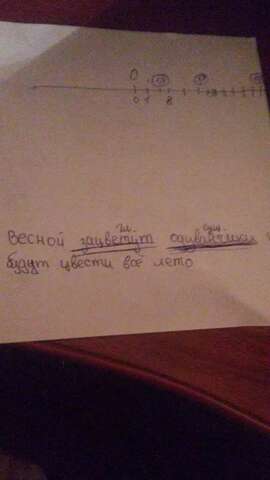 0
0 1 8
гл. сущ.
Весной зацветут одуванчики
будут цвести всё лето